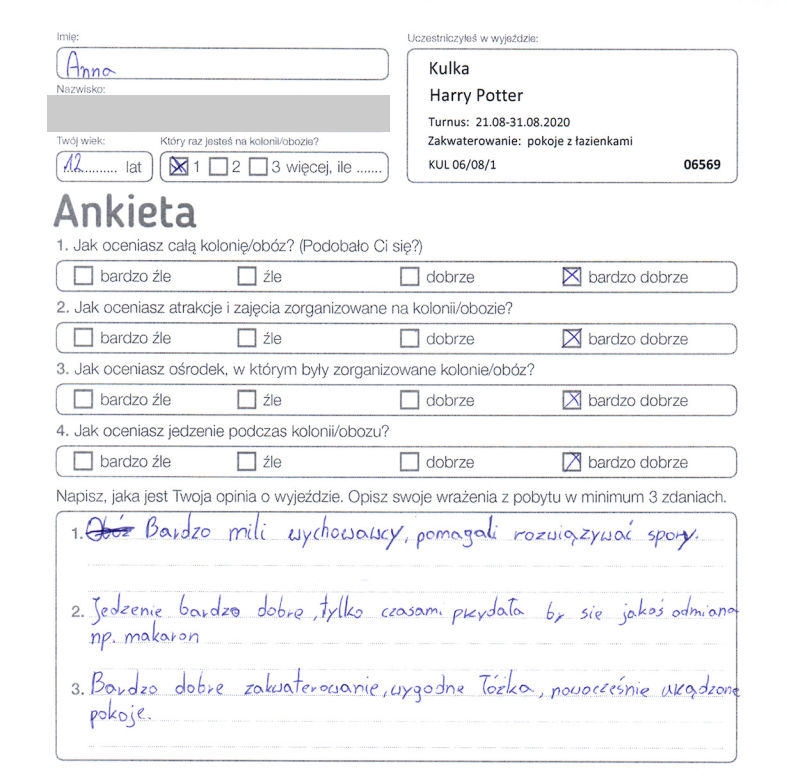 Imię:
Anna
Nazwisko:
Twój wiek:
12 lat
Który raz jesteś na kolonii/obozie?
1 2 3 więcej, ile .......
Uczestniczyłeś w wyjeździe:
Kulka
Harry Potter
Turnus: 21.08-31.08.2020
Zakwaterowanie: pokoje z łazienkami
KUL 06/08/1 06569
Ankieta
1. Jak oceniasz całą kolonię/obóz? (Podobało Ci się?)
bardzo źle źle dobrze bardzo dobrze
2. Jak oceniasz atrakcje i zajęcia zorganizowane na kolonii/obozie?
bardzo źle źle dobrze bardzo dobrze
3. Jak oceniasz ośrodek, w którym były zorganizowane kolonie/obóz?
bardzo źle źle dobrze bardzo dobrze
4. Jak oceniasz jedzenie podczas kolonii/obozu?
bardzo źle źle dobrze bardzo dobrze
Napisz, jaka jest Twoja opinia o wyjeździe. Opisz swoje wrażenia z pobytu w minimum 3 zdaniach.
1. Obóz Bardzo mili wychowawcy, pomagali rozwiązywać spory.
2. Jedzenie bardzo dobre, tylko czasami przydała by się jakaś odmiana
np. makaron
3. Bardzo dobre zakwaterowanie, wygodne łóżka, nowocześnie urządzone
pokoje.